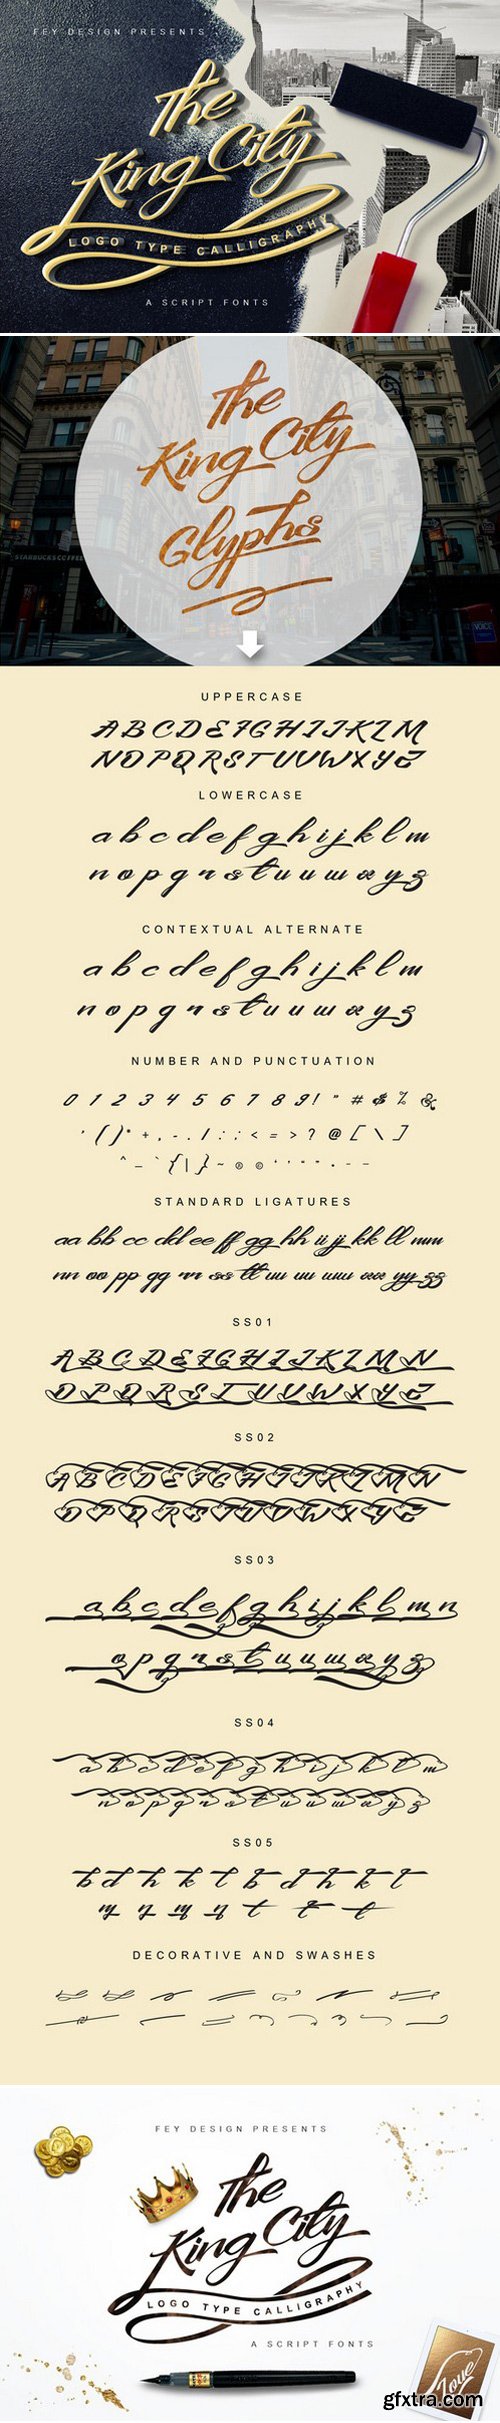 FEY DESIGN PRESENTS
The
King City
LOGO TYPE CALLIGRAPHY
A SCRIPT FONTS
The
King City
Glyphs
STARBUCKS COFFEE
UPPERCASE
A B C D E F G H I J K L M
N O P Q R S T U V W X Y Z
LOWERCASE
a b c d e f g h i j k l m
n o p q r s t u v w x y z
CONTEXTUAL ALTERNATE
a b c d e f g h i j k l m
n o p q r s t u v w x y z
NUMBER AND PUNCTUATION
0 1 2 3 4 5 6 7 8 9 ! " # $ % &
' ( ) * + , - . / : ; < = > ? @ [ \ ]
^ _ ` { | } ~ ® © ‘ ’ “ ” • – —
STANDARD LIGATURES
aa bb cc dd ee ff gg hh ii jj kk ll mm
nn oo pp qq rr ss tt uu vv ww xx yy zz
SS01
A B C D E F G H I J K L M N
O P Q R S T U V W X Y Z
SS02
A B C D E F G H I J K L M N
O P Q R S T U V W X Y Z
SS03
a b c d e f g h i j k l m n
o p q r s t u v w x y z
SS04
a b c d e f g h i j k l m
n o p q r s t u v w x y z
SS05
b d h k l b d h k l
DECORATIVE AND SWASHES
FEY DESIGN PRESENTS
The
King City
LOGO TYPE CALLIGRAPHY
A SCRIPT FONTS
Love
gfxtra.com